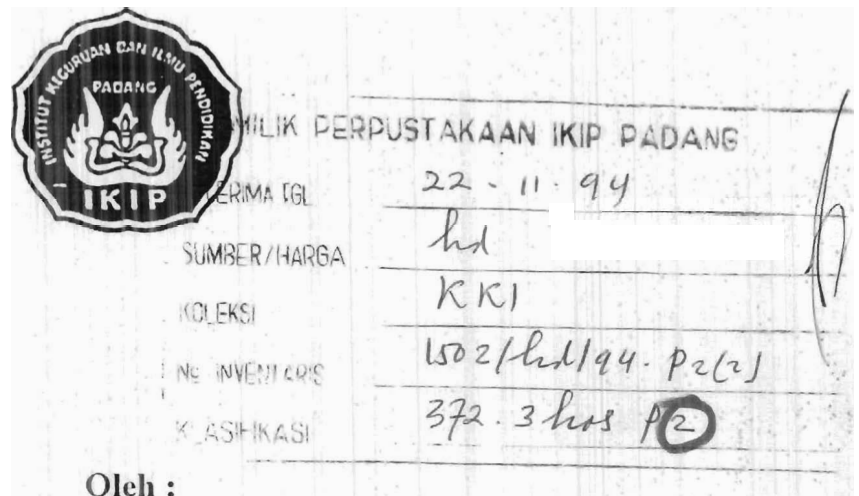 INSTITUT KEGURUAN DAN ILMU PENDIDIKAN
PADANG
IKIP
MILIK PERPUSTAKAAN IKIP PADANG
TERIMA TGL 22 - 11 - 94
SUMBER/HARGA hd
KOLEKSI KKI
No INVENTARIS 1502/hd/94. P2(2)
KLASIFIKASI 372.3 hos P2
Oleh :